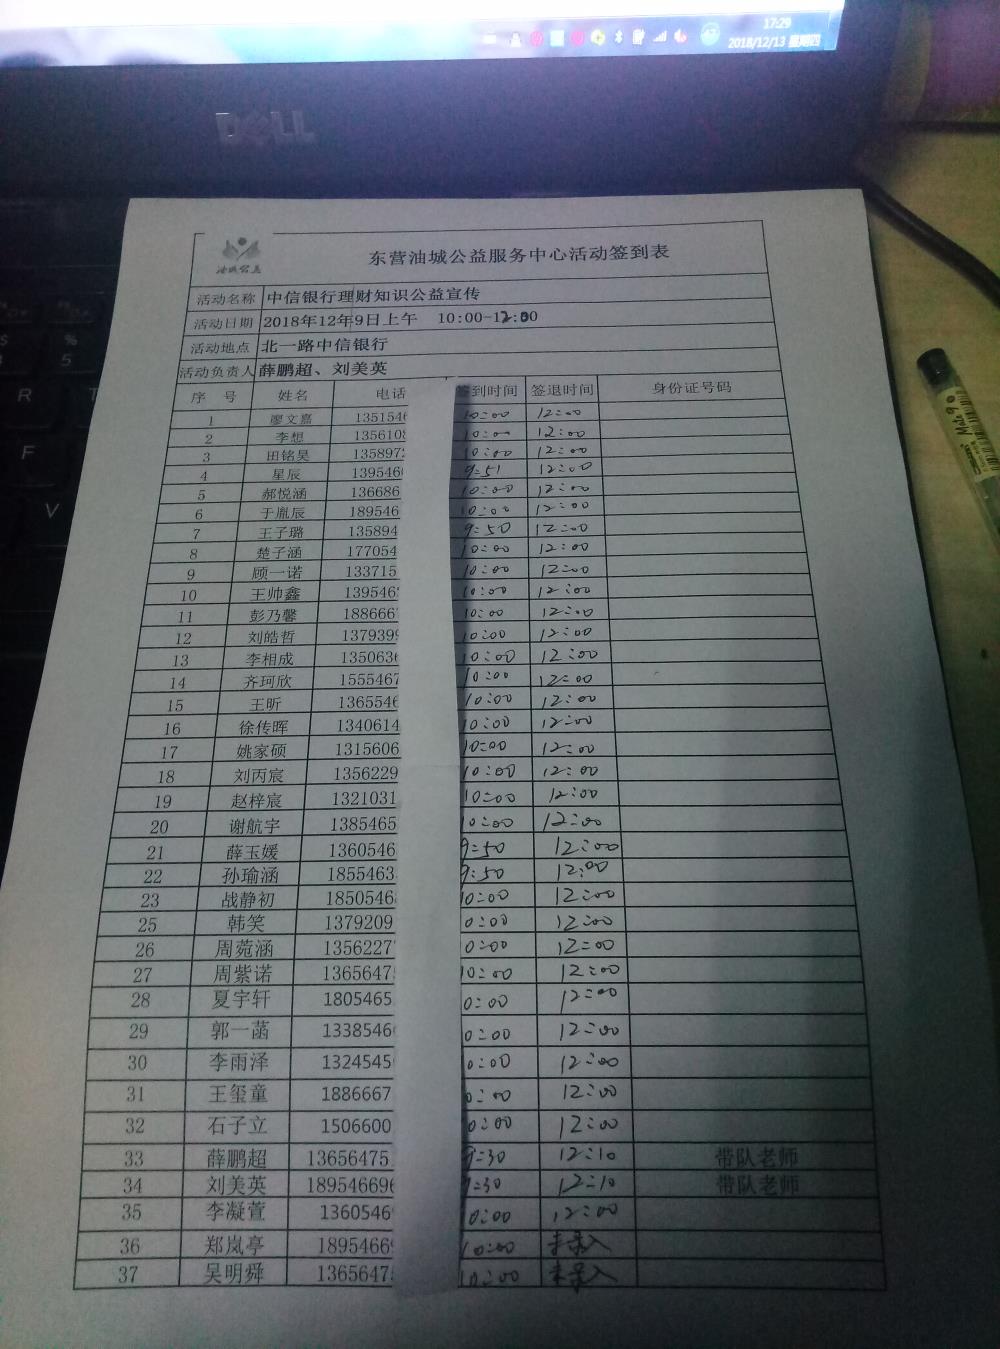 17:29
2018/12/13 星期四
DELL
油城公益
东营油城公益服务中心活动签到表
活动名称 中信银行理财知识公益宣传
活动日期 2018年12年9日上午 10:00-12:00
活动地点 北一路中信银行
活动负责人 薛鹏超、刘美英
序 号 姓名 电话 到时间 签退时间 身份证号码
1 廖文嘉 1351546 10:00 12:00
2 李想 1356108 10:00 12:00
3 田铭昊 1358972 10:00 12:00
4 星辰 1395460 9:51 12:00
5 郝悦涵 136686 10:00 12:00
6 于胤辰 189546 10:00 12:00
7 王子璐 135894 9:50 12:00
8 楚子涵 177054 10:00 12:00
9 顾一诺 133715 10:00 12:00
10 王帅鑫 1395462 10:00 12:00
11 彭乃馨 1886667 10:00 12:00
12 刘皓哲 1379399 10:00 12:00
13 李相成 1350636 10:00 12:00
14 齐珂欣 1555467 10:00 12:00
15 王昕 1365546 10:00 12:00
16 徐传晖 1340614 10:00 12:00
17 姚家硕 1315606 10:00 12:00
18 刘丙宸 1356229 10:00 12:00
19 赵梓宸 1321031 10:00 12:00
20 谢航宇 1385465 10:00 12:00
21 薛玉媛 1360546 9:50 12:00
22 孙瑜涵 1855463 9:50 12:00
23 战静初 1850546 10:00 12:00
25 韩笑 1379209 0:00 12:00
26 周菀涵 1356227 10:00 12:00
27 周紫诺 1365647 10:00 12:00
28 夏宇轩 1805465 0:00 12:00
29 郭一菡 1338546 0:00 12:00
30 李雨泽 1324545 0:00 12:00
31 王玺童 1886667 0:00 12:00
32 石子立 1506600 0:00 12:00
33 薛鹏超 13656475 9:30 12:10 带队老师
34 刘美英 189546696 9:30 12:10 带队老师
35 李凝萱 1360546 0:00 12:00
36 郑岚亭 1895466 10:00 未录入
37 吴明舜 1365647 10:00 未录入